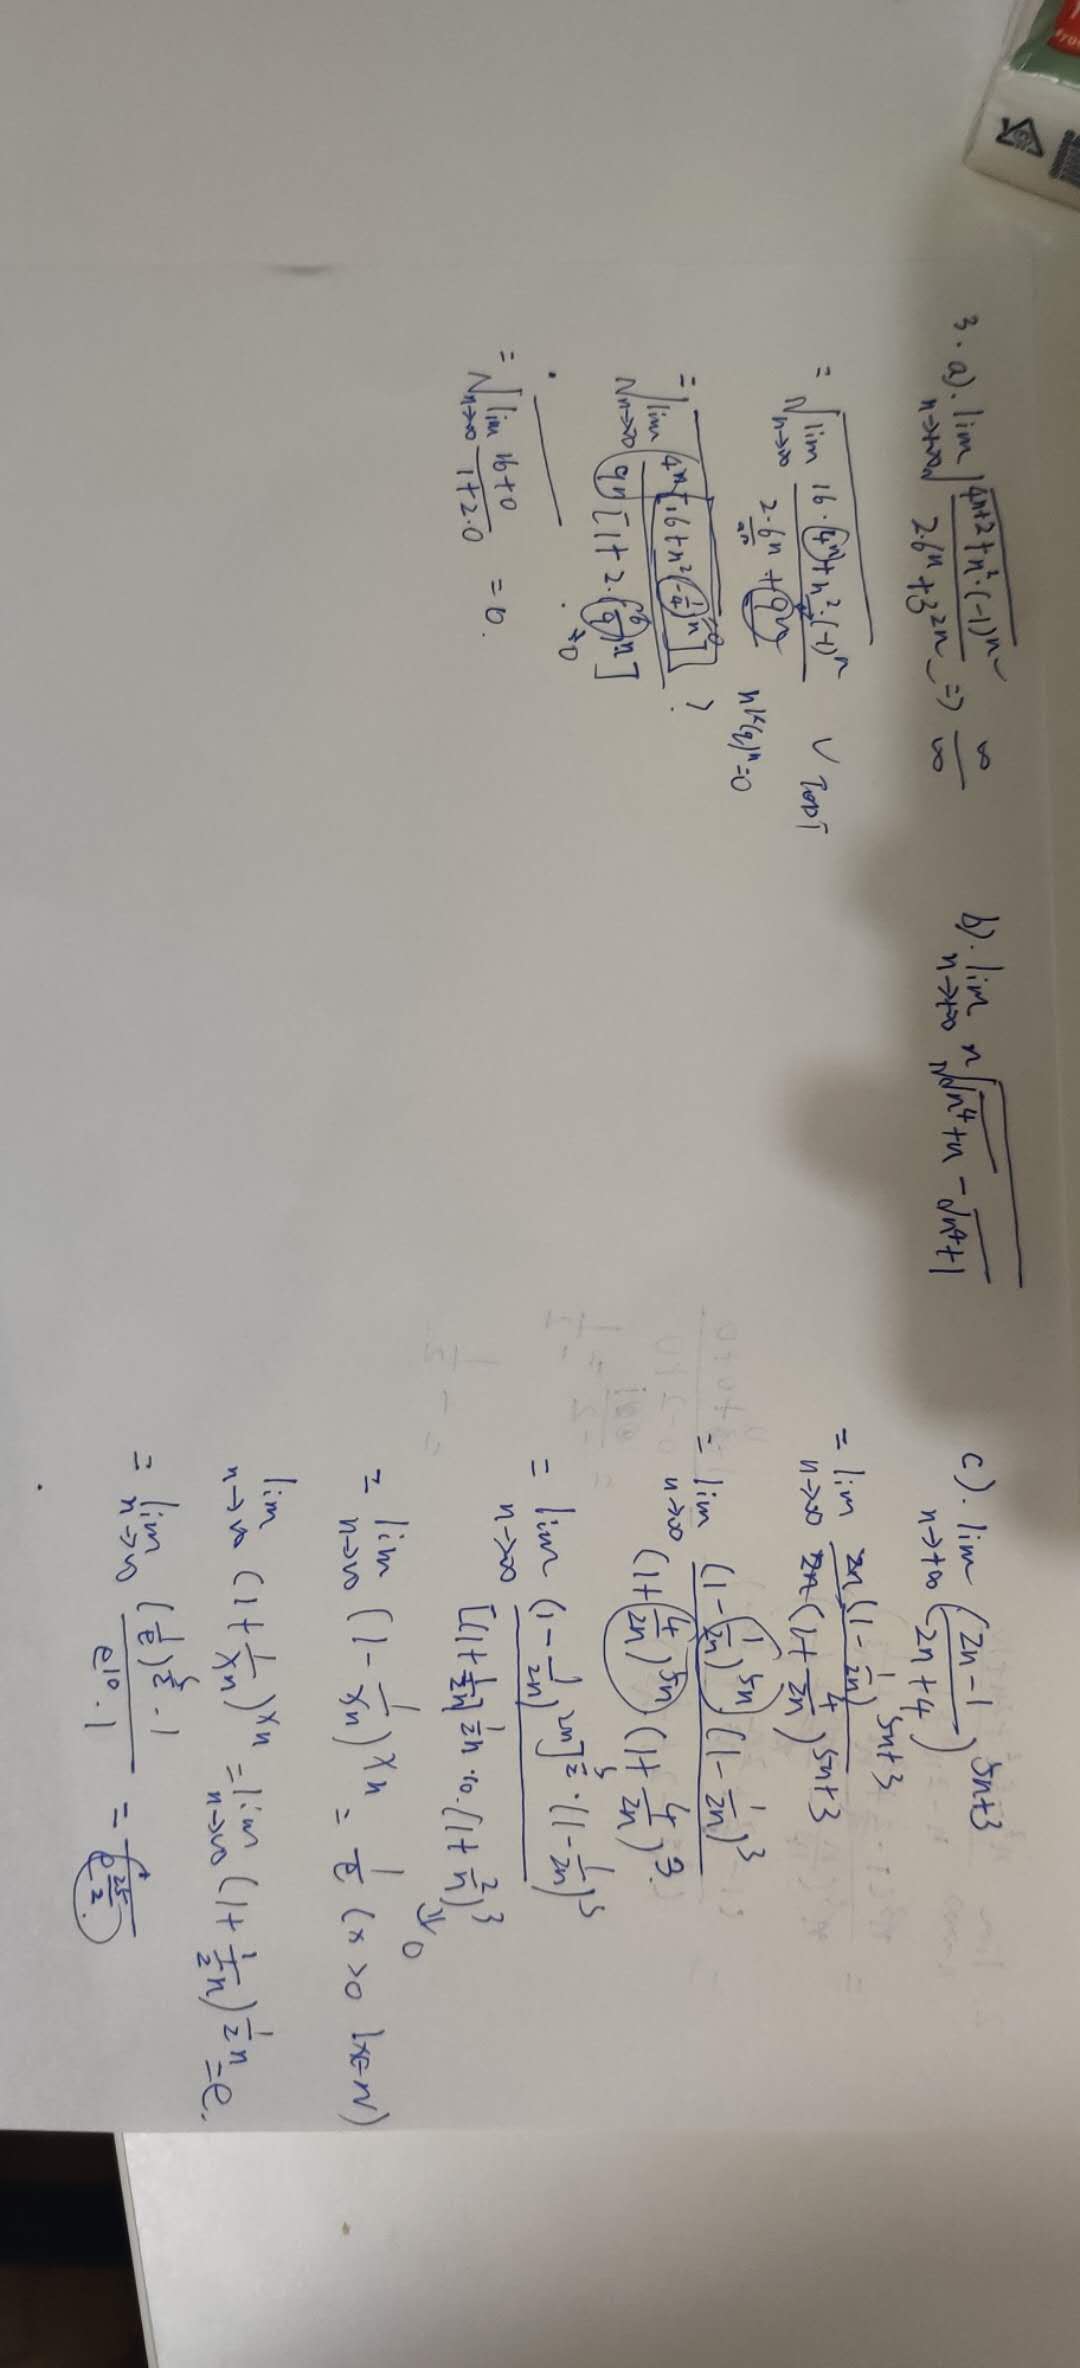 3. a). lim n→+∞ √((4^{n+2} + n²·(-1)^n)/(2·6^n + 3^{2n})) ⇒ ∞/∞
= √(lim n→∞ (16·(4^n) + n²·(-1)^n)/(2·6^n + 9^n)) ✓
n^k(q)^n = 0
= √(lim n→∞ 4^n[16 + n²(-1/4)^n]/(9^n[1 + 2·(6/9)^n])) ?
→0
→0
= √(lim n→∞ (16+0)/(1+2·0)) = 0.
b). lim n→+∞ n√(√(n⁴+n) - √(n⁴+1))
c). lim n→+∞ ((2n-1)/(2n+4))^{5n+3}
= lim n→∞ (2n(1 - 1/2n)^{5n+3})/(2n(1 + 4/2n)^{5n+3})
= lim n→∞ ((1 - 1/2n)^{5n} (1 - 1/2n)^3)/((1 + 4/2n)^{5n} (1 + 4/2n)^3)
= lim n→∞ ((1 - 1/2n)^{2n}]^{5/2}·(1 - 1/2n)^3)/([(1 + 1/(1/2 n)]^{1/2 n · 10}·(1 + 2/n)^3)
⇓ 0
= lim n→∞ (1 - 1/xn)^{xn} = 1/e (x > 0 x∈N)
lim n→∞ (1 + 1/xn)^{xn} = lim n→∞ (1 + 1/(1/2 n))^{1/2 n} = e.
= lim n→∞ ((1/e)^{5/2}·1)/(e^{10}·1) = 1/e^{25/2}